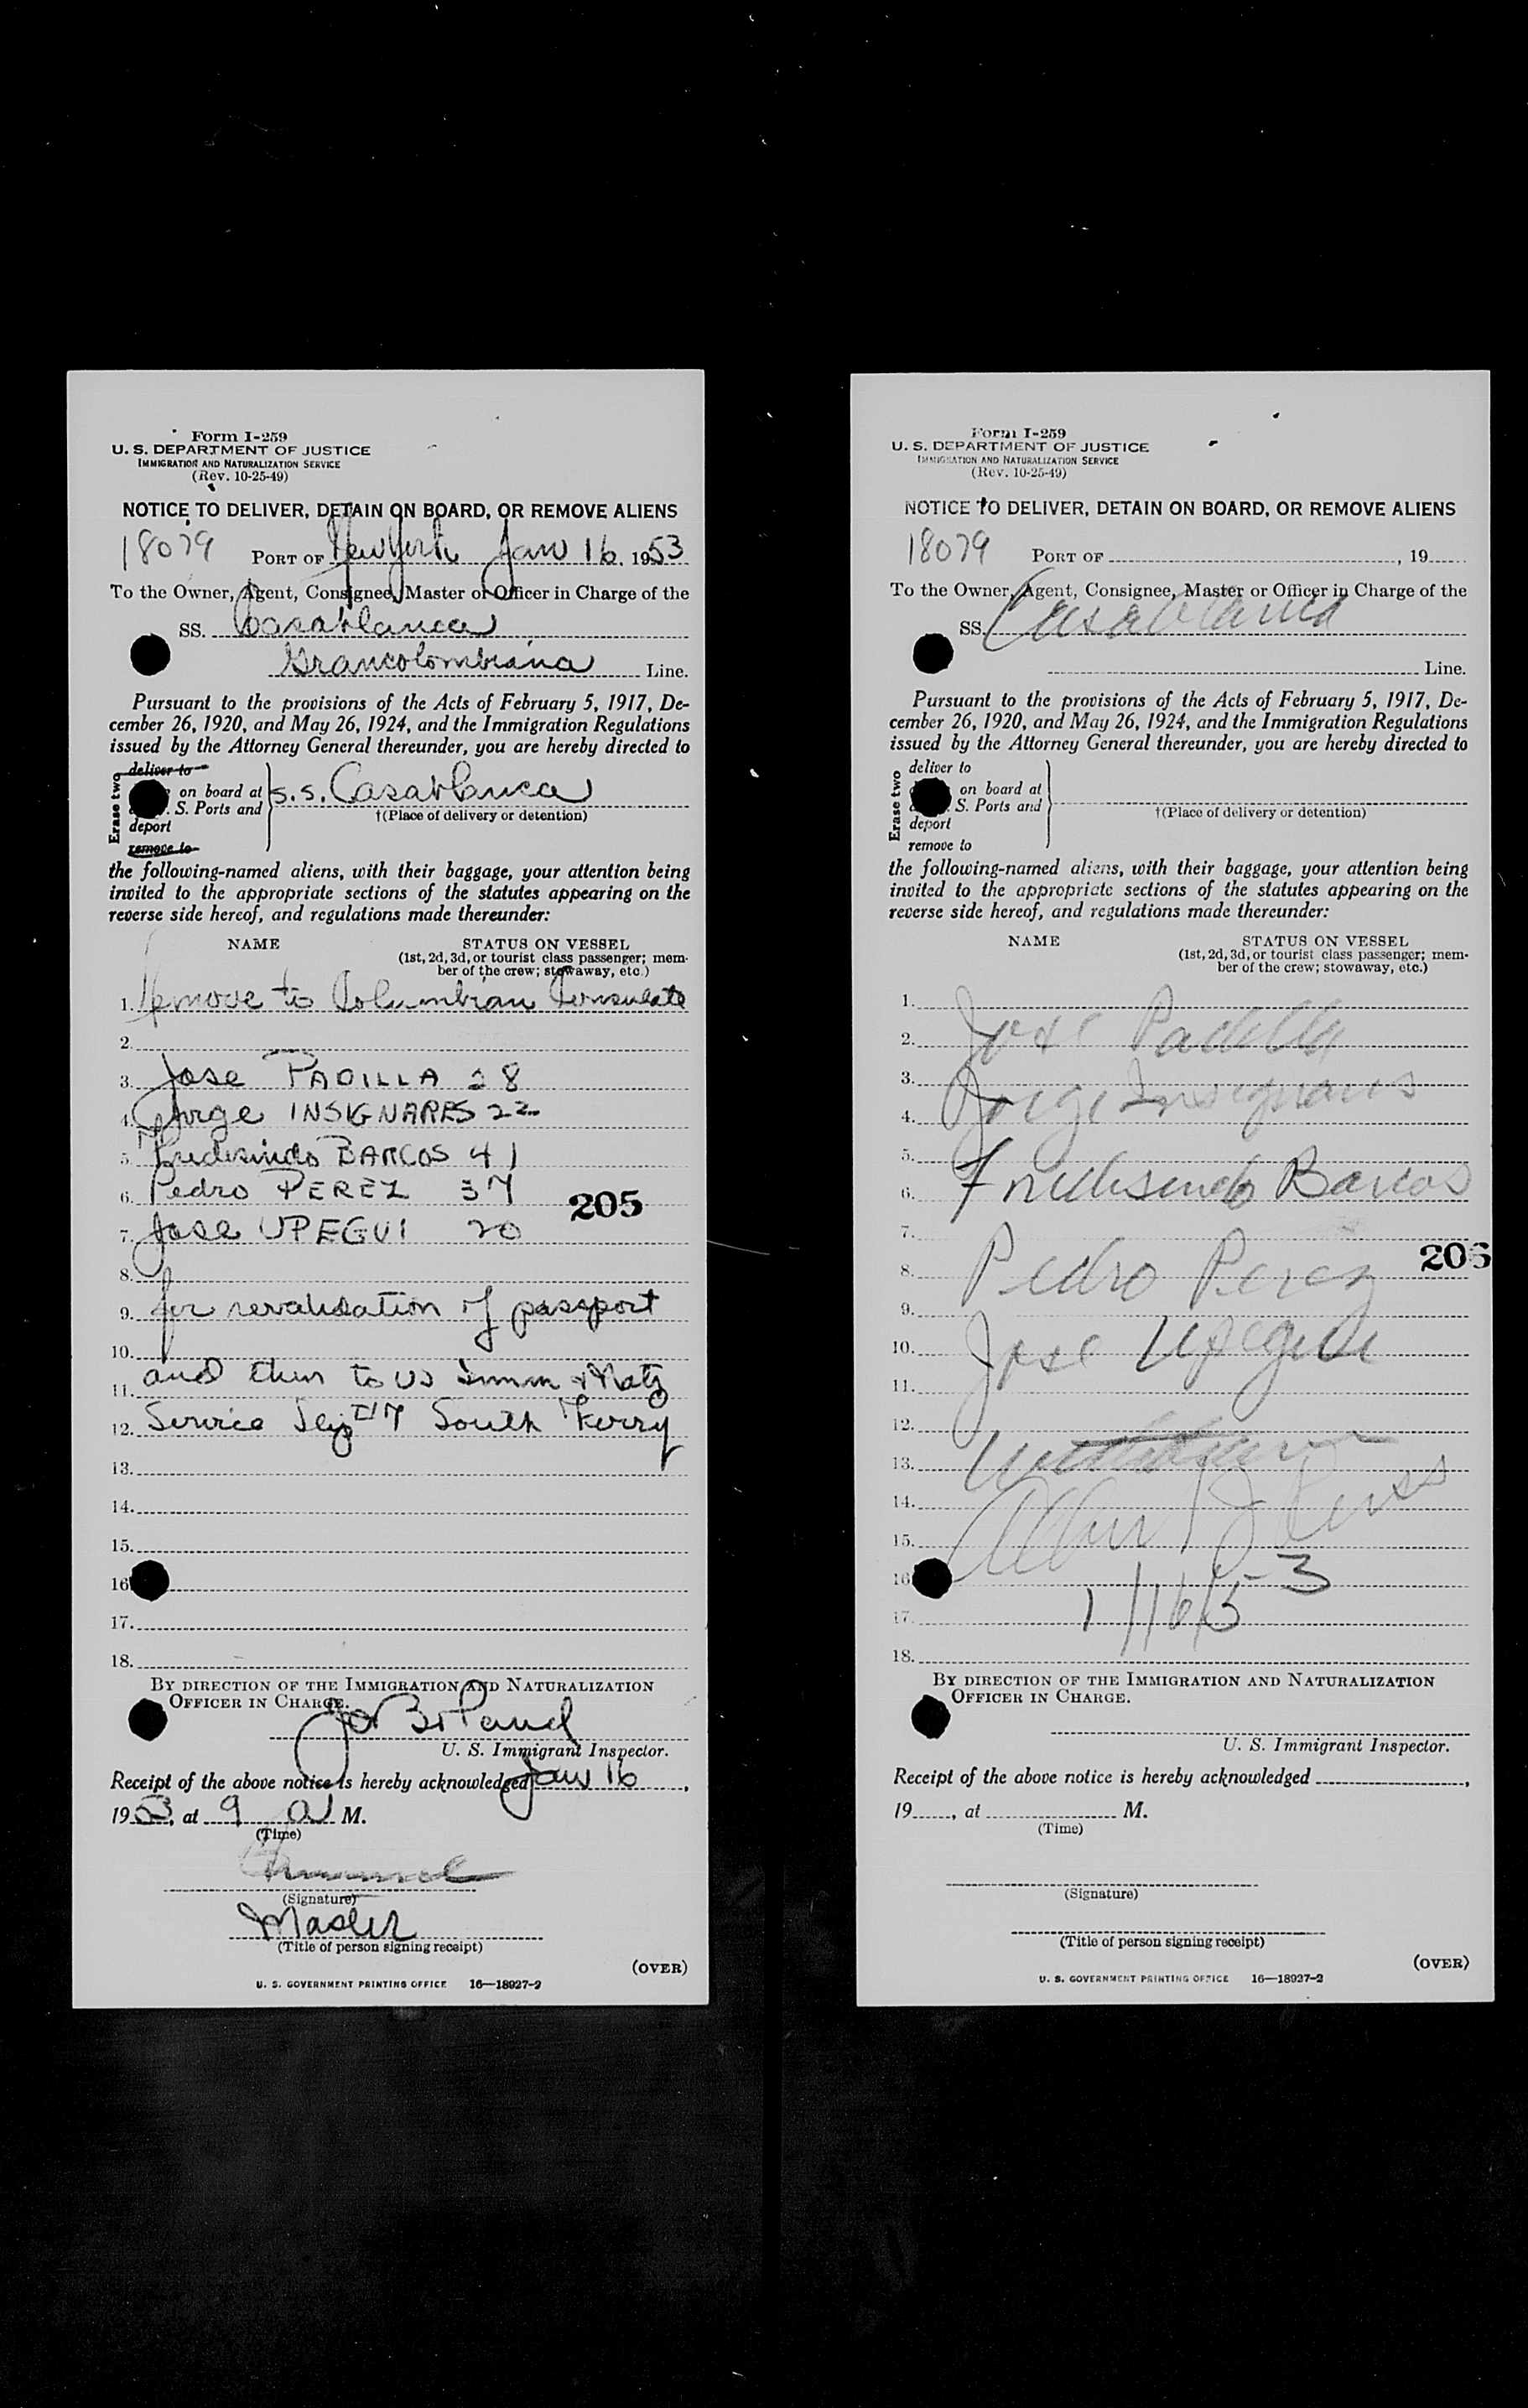 Form I-259
U. S. DEPARTMENT OF JUSTICE
IMMIGRATION AND NATURALIZATION SERVICE
(Rev. 10-25-49)
NOTICE TO DELIVER, DETAIN ON BOARD, OR REMOVE ALIENS
18079 PORT OF New York Jan 16, 1953
To the Owner, Agent, Consignee, Master or Officer in Charge of the
SS. Casablanca
Grancolombiana Line.
Pursuant to the provisions of the Acts of February 5, 1917, De-
cember 26, 1920, and May 26, 1924, and the Immigration Regulations
issued by the Attorney General thereunder, you are hereby directed to
Erase two
deliver to
on board at
S. Ports and
deport
remove to
s.s. Casablanca
†(Place of delivery or detention)
the following-named aliens, with their baggage, your attention being
invited to the appropriate sections of the statutes appearing on the
reverse side hereof, and regulations made thereunder:
NAME STATUS ON VESSEL
(1st, 2d, 3d, or tourist class passenger; mem-
ber of the crew; stowaway, etc.)
1. Remove to Columbian Consulate
2.
3. Jose PADILLA 28
4. Jorge INSIGNARES 22
5. Fredesindo BARCOS 41
6. Pedro PEREZ 37
205
7. Jose UPEGUI 20
8.
9. for revalidation of passport
10.
11. and then to US Imm & Natz
12. Service Slip #7 South Ferry
13.
14.
15.
16
17.
18.
BY DIRECTION OF THE IMMIGRATION AND NATURALIZATION
OFFICER IN CHARGE.
U. S. Immigrant Inspector.
Receipt of the above notice is hereby acknowledged Jan 16,
1953, at 9 a M.
(Time)
(Signature)
Master
(Title of person signing receipt)
(OVER)
U. S. GOVERNMENT PRINTING OFFICE 16—18927-2
Form I-259
U. S. DEPARTMENT OF JUSTICE
IMMIGRATION AND NATURALIZATION SERVICE
(Rev. 10-25-49)
NOTICE TO DELIVER, DETAIN ON BOARD, OR REMOVE ALIENS
18079 PORT OF , 19
To the Owner, Agent, Consignee, Master or Officer in Charge of the
SS. Casablanca
Line.
Pursuant to the provisions of the Acts of February 5, 1917, De-
cember 26, 1920, and May 26, 1924, and the Immigration Regulations
issued by the Attorney General thereunder, you are hereby directed to
Erase two
deliver to
on board at
S. Ports and
deport
remove to
†(Place of delivery or detention)
the following-named aliens, with their baggage, your attention being
invited to the appropriate sections of the statutes appearing on the
reverse side hereof, and regulations made thereunder:
NAME STATUS ON VESSEL
(1st, 2d, 3d, or tourist class passenger; mem-
ber of the crew; stowaway, etc.)
1.
2. Jose Padilla
3.
4. Jorge Insignares
5.
6. Fredesindo Barcos
7.
206
8. Pedro Perez
9.
10. Jose Upegui
11.
12.
13.
14.
15.
16
17. 1/16/53
18.
BY DIRECTION OF THE IMMIGRATION AND NATURALIZATION
OFFICER IN CHARGE.
U. S. Immigrant Inspector.
Receipt of the above notice is hereby acknowledged ,
19 , at M.
(Time)
(Signature)
(Title of person signing receipt)
(OVER)
U. S. GOVERNMENT PRINTING OFFICE 16—18927-2